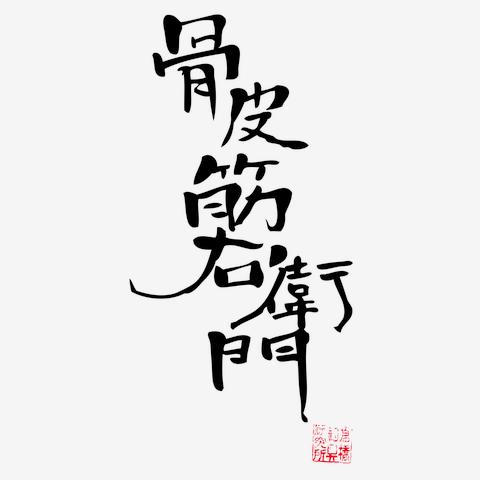 骨皮筋右衛門